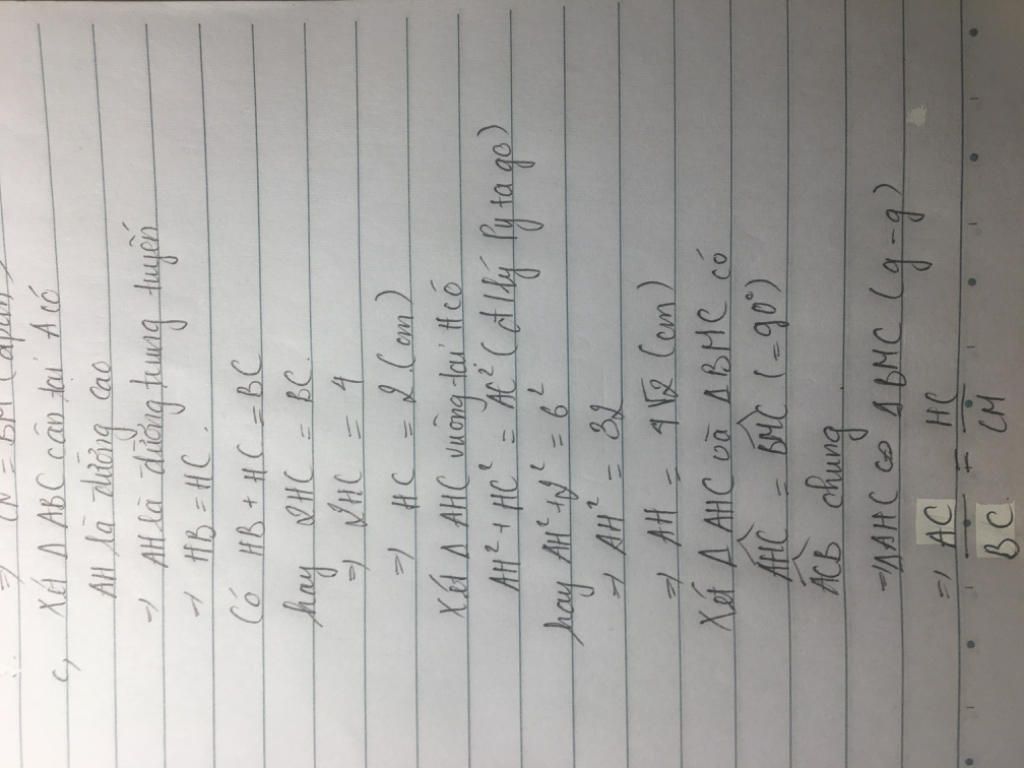 => CN = BM (
c, Xét Δ ABC cân tại A có
AH là đường cao
=> AH là đường trung tuyến
=> HB = HC.
Có HB + HC = BC
hay 2HC = BC.
=> 2HC = 4
=> HC = 2 (cm)
Xét Δ AHC vuông tại H có
AH² + HC² = AC² (đ lhý Py ta go)
hay AH² + 2² = 6²
=> AH² = 32
=> AH = 4√2 (cm)
Xét Δ AHC và Δ BMC có
AHC = BMC (= 90°)
ACB chung
=> ΔAHC ∽ Δ BMC (g-g)
=> AC/BC = HC/CM